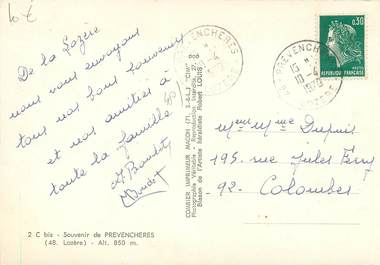 10 €
De la Lozère
nous vous envoyons
tous nos bons souvenirs
et nos amitiés à
toute la famille
2 C bis - Souvenir de PREVENCHERES
(48. Lozère) - Alt. 850 m.
COMBIER IMPRIMEUR MACON (71. S.-&-L.) "CIM"
Photographie Véritable - Reproduction interdite
Blason de l'Artiste Héraldiste Robert LOUIS
PREVENCHERES
LOZERE
PREVENCHERES
15 H
10-4
1970
LOZERE
0,30
REPUBLIQUE FRANCAISE
Mr et Mme Dupuis
195 rue Jules Ferry
92. Colombes